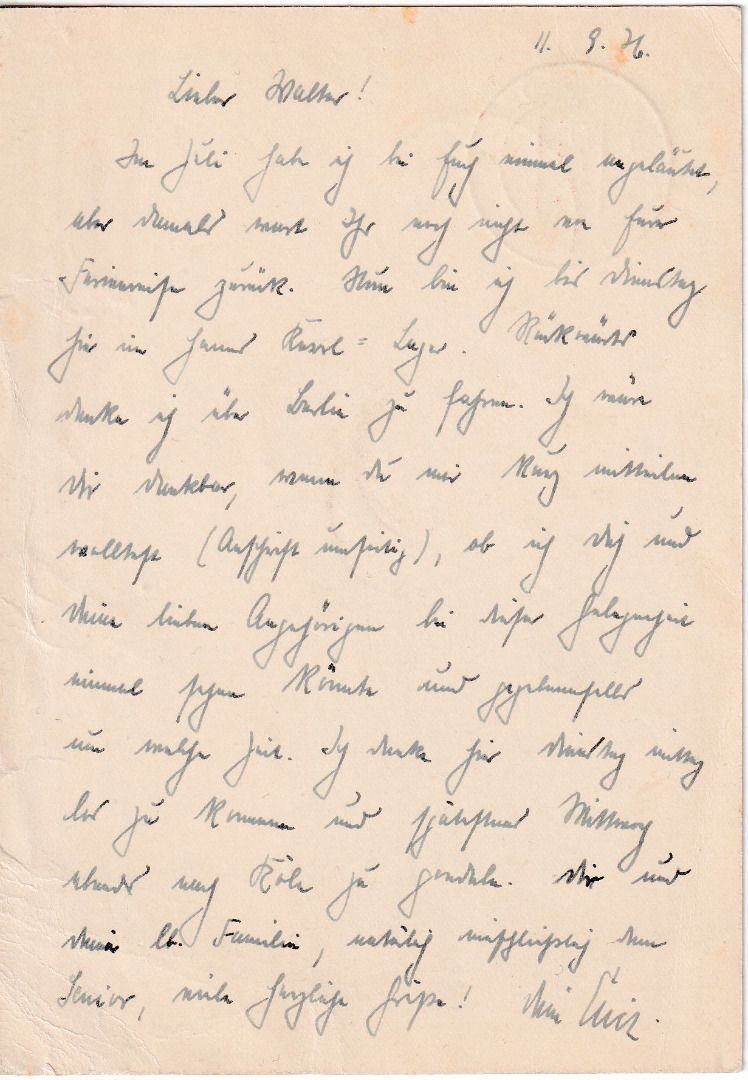 11. 9. 36.
Lieber Walter!
Im Juli habe ich bei Euch einmal angeläutet,
aber damals wart Ihr noch nicht von Eurer
Ferienreise zurück. Nun bin ich bis Dienstag
hier im Lager. Rückwärts
denke ich über Berlin zu fahren. Ich wäre
Dir dankbar, wenn du mir kurz mitteilen
wolltest (Anschrift umseitig), ob ich Dich und
Deine lieben Angehörigen bei dieser Gelegenheit
einmal sehen könnte und gegebenenfalls
um welche Zeit. Ich denke hier Dienstag mittag
los zu kommen und spätestens Mittwoch
abends nach Köln zu gondeln. Dir und
Deiner lb. Familie, natürlich einschließlich dem
Senior, viele herzliche Grüße! Dein